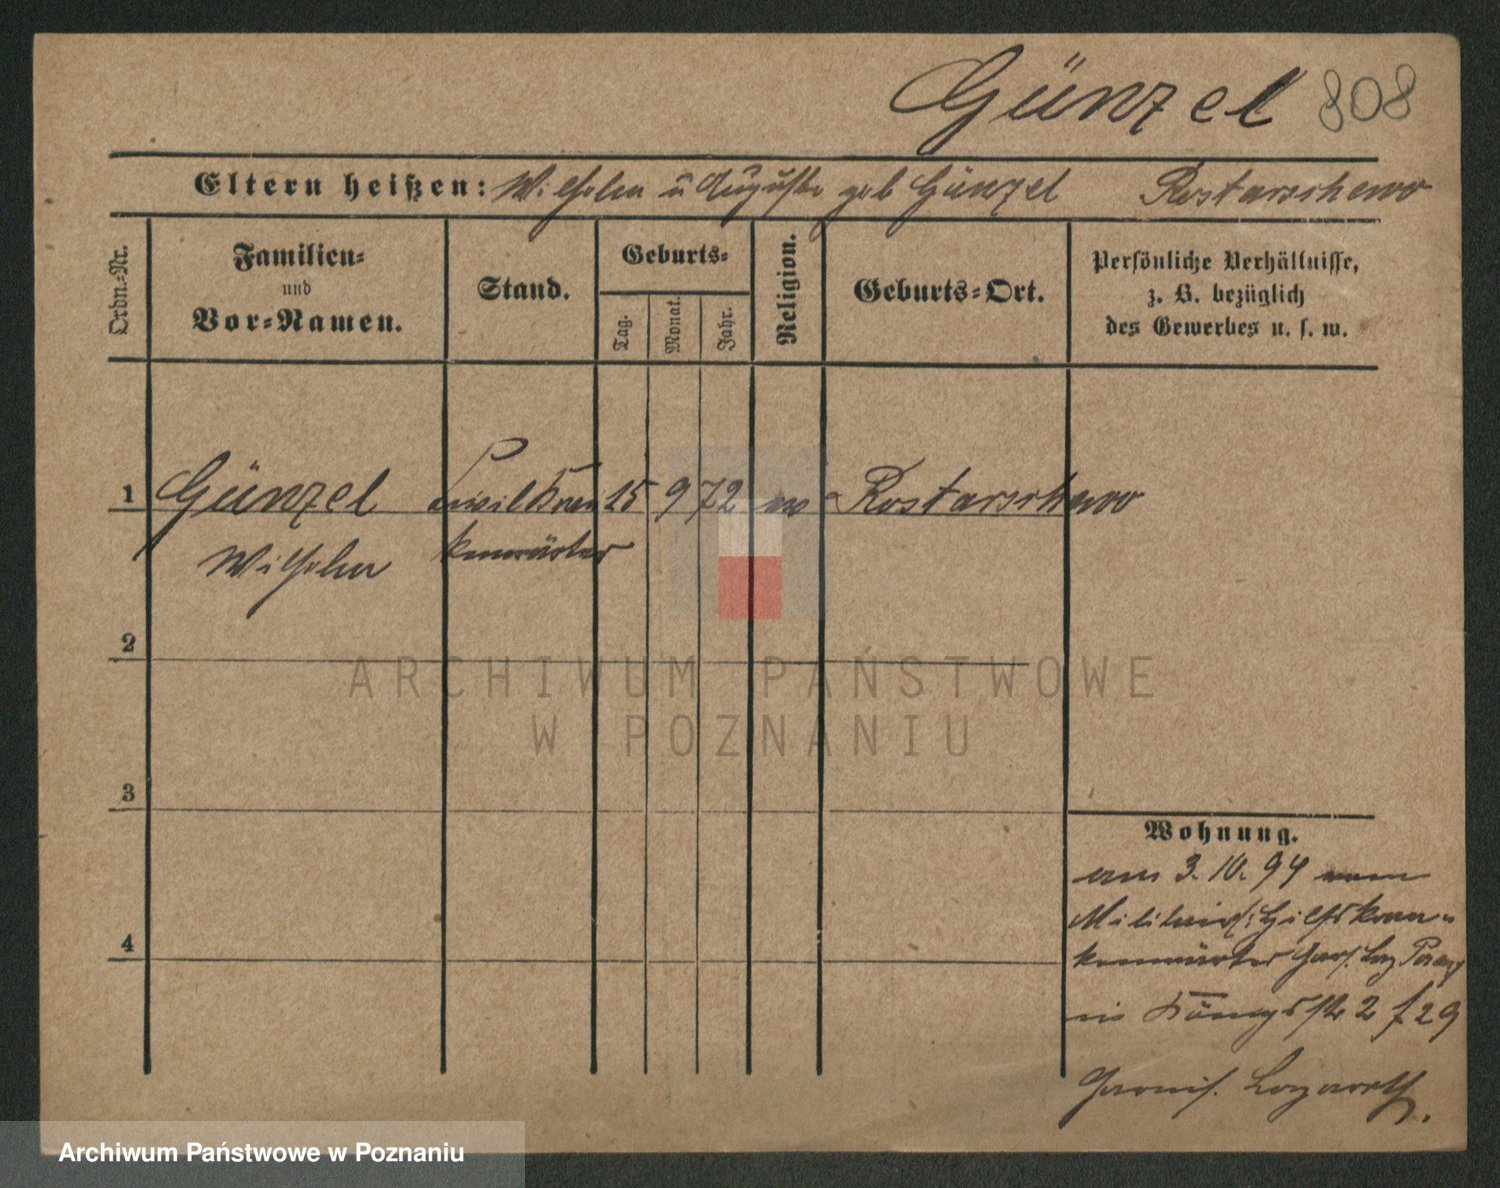 Günzel 808
Eltern heißen: Wilhelm u Auguste geb Günzel Rostarschewo
Ordn.-Nr.
Familien-
und
Vor-Namen.
Stand.
Geburts-
Tag.
Monat.
Jahr.
Religion.
Geburts-Ort.
Persönliche Verhältnisse,
z. B. bezüglich
des Gewerbes u. s. w.
1 Günzel Civilkran 15 9 72 ev Rostarschewo
Wilhelm kenwärter
2
3
4
Wohnung.
am 3. 10. 94 vom
Militair Hilfskran-
kenwärter Garn. Laz Posen
in Königstr 2 f 29
Garnis. Lazareth.
ARCHIWUM PAŃSTWOWE
W POZNANIU
Archiwum Państwowe w Poznaniu